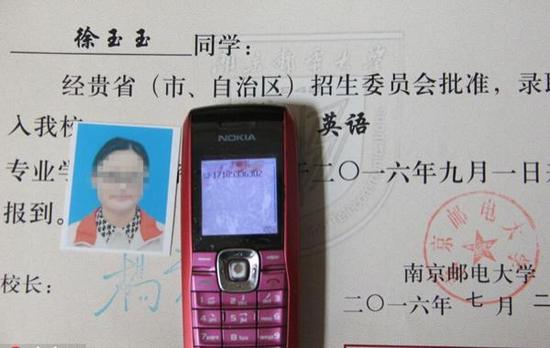 徐玉玉 同学:
经贵省(市、自治区)招生委员会批准,录取
入我校 英语
专业学 二〇一六年九月一日
报到。
NOKIA
校长:
南京邮电大学
二〇一六年七月二